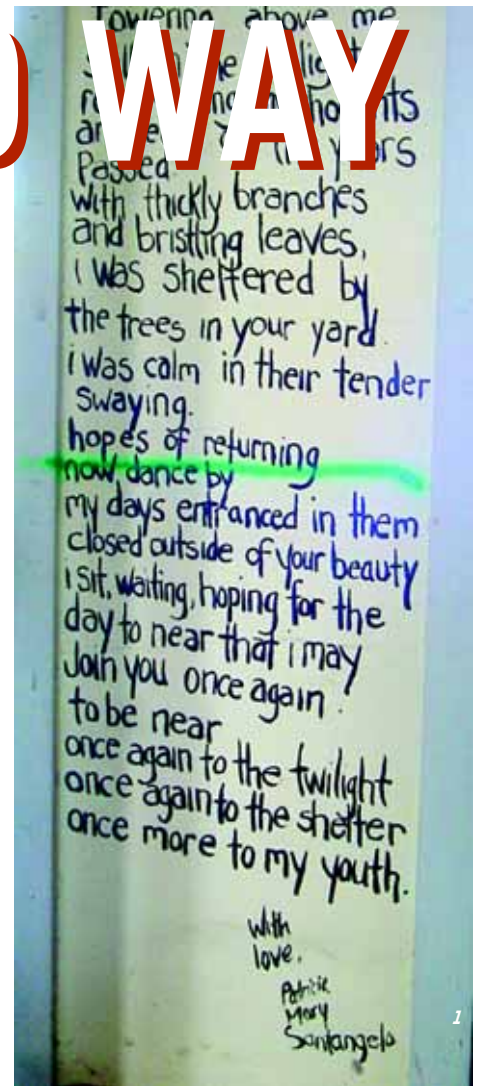 Towering above me
WAY
Passed
with thickly branches
and bristling leaves,
i was sheltered by
the trees in your yard.
i was calm in their tender
swaying.
hopes of returning
now dance by
my days entranced in them
closed outside of your beauty
i sit, waiting, hoping for the
day to near that i may
Join you once again.
to be near
once again to the twilight
once again to the shelter
once more to my youth.
with
love,
Patricia
Mary
Santangelo
1